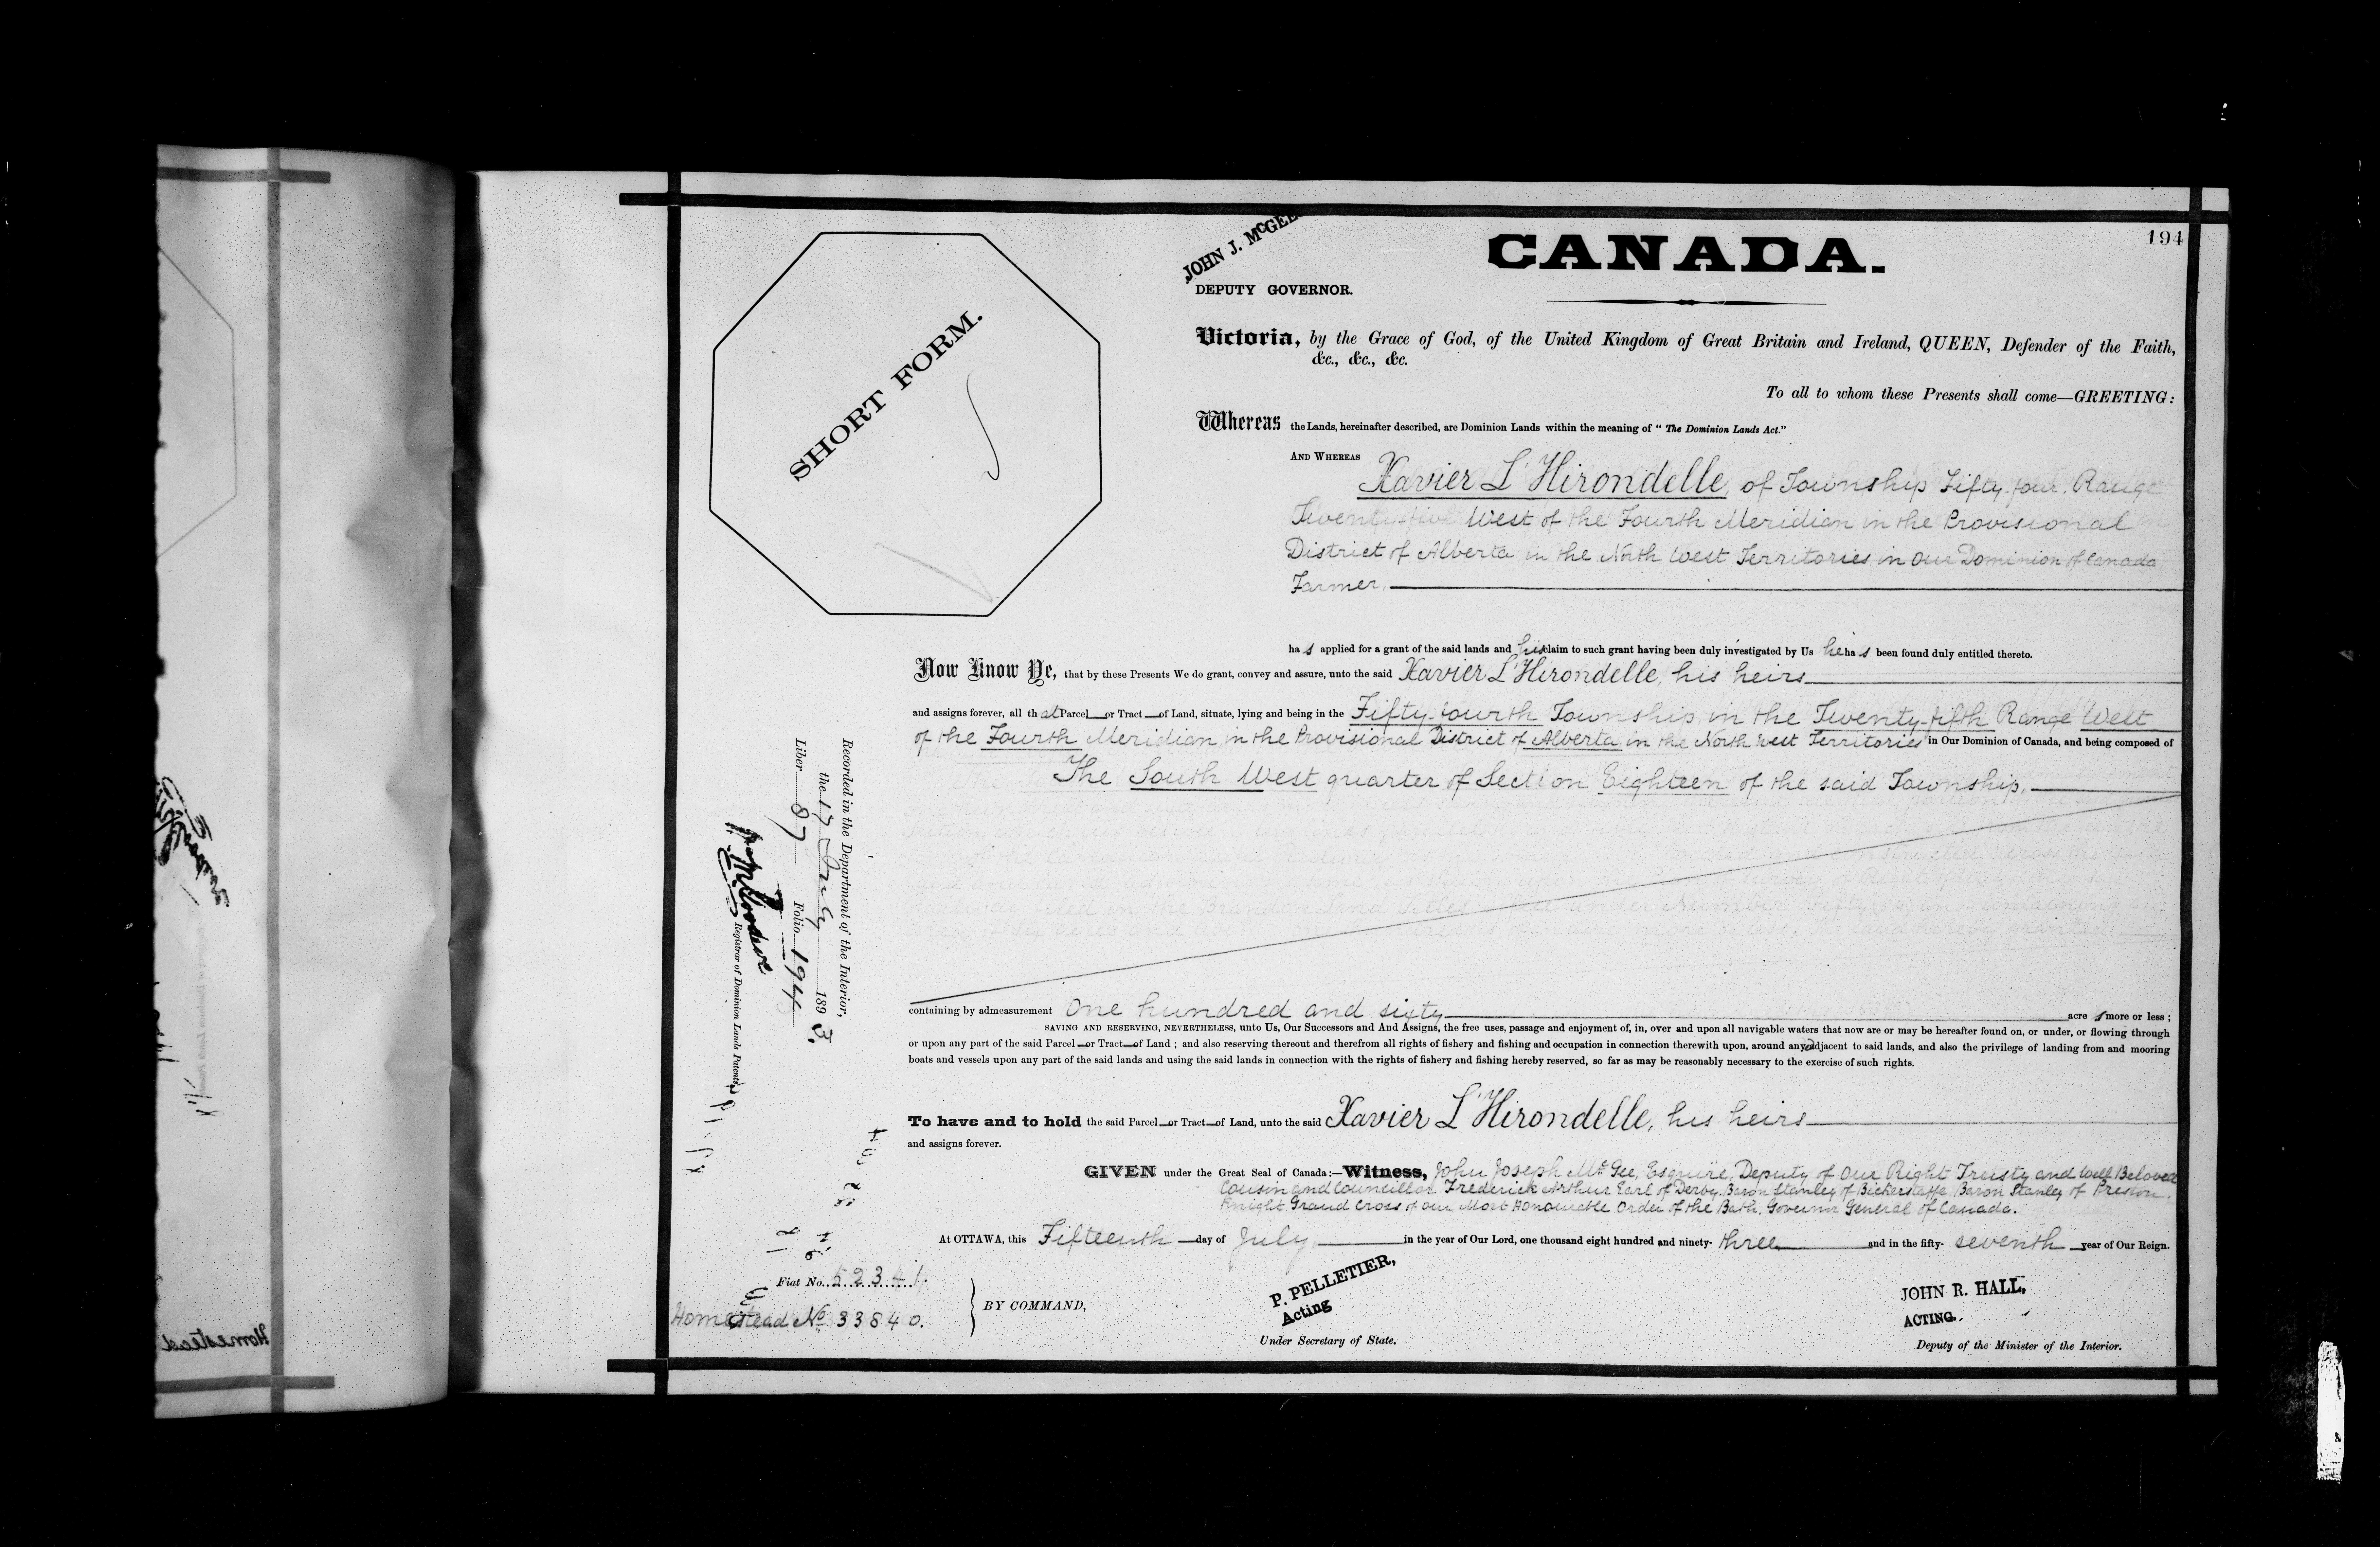 194
JOHN J. McGEE
DEPUTY GOVERNOR.
CANADA.
SHORT FORM.
Victoria, by the Grace of God, of the United Kingdom of Great Britain and Ireland, QUEEN, Defender of the Faith,
&c., &c., &c.
To all to whom these Presents shall come—GREETING:
Whereas the Lands, hereinafter described, are Dominion Lands within the meaning of "The Dominion Lands Act."
AND WHEREAS
Xavier L'Hirondelle, of Township Fifty-four, Range
Twenty-five West of the Fourth Meridian in the Provisional
District of Alberta in the North West Territories in Our Dominion of Canada,
Farmer.
has applied for a grant of the said lands and his claim to such grant having been duly investigated by Us he has been found duly entitled thereto.
Now Know Ye, that by these Presents We do grant, convey and assure, unto the said Xavier L'Hirondelle, his heirs
and assigns forever, all that Parcel or Tract of Land, situate, lying and being in the Fifty-fourth Township, in the Twenty-fifth Range West
of the Fourth Meridian, in the Provisional District of Alberta in the North West Territories in Our Dominion of Canada, and being composed of
The South West quarter of Section Eighteen of the said Township.
containing by admeasurement One hundred and sixty acres more or less;
SAVING AND RESERVING, NEVERTHELESS, unto Us, Our Successors and And Assigns, the free uses, passage and enjoyment of, in, over and upon all navigable waters that now are or may be hereafter found on, or under, or flowing through
or upon any part of the said Parcel or Tract of Land; and also reserving thereout and therefrom all rights of fishery and fishing and occupation in connection therewith upon, around and adjacent to said lands, and also the privilege of landing from and mooring
boats and vessels upon any part of the said lands and using the said lands in connection with the rights of fishery and fishing hereby reserved, so far as may be reasonably necessary to the exercise of such rights.
To have and to hold the said Parcel or Tract of Land, unto the said Xavier L'Hirondelle, his heirs
and assigns forever.
GIVEN under the Great Seal of Canada:—Witness, John Joseph McGee, Esquire, Deputy of Our Right Trusty and Well Beloved
Cousin and Councillor Frederick Arthur Earl of Derby, Baron Stanley of Bickerstaffe Baron Stanley of Preston,
Knight Grand Cross of our Most Honourable Order of the Bath, Governor General of Canada.
At OTTAWA, this Fifteenth day of July, in the year of Our Lord, one thousand eight hundred and ninety-three and in the fifty-seventh year of Our Reign.
Fiat No. 52341.
Homestead No 33840.
BY COMMAND,
P. PELLETIER,
Acting
Under Secretary of State.
JOHN R. HALL,
ACTING.
Deputy of the Minister of the Interior.
Recorded in the Department of the Interior,
the 17 July 1893.
Liber 87 Folio 194
Registrar of Dominion Lands Patents
Homestead